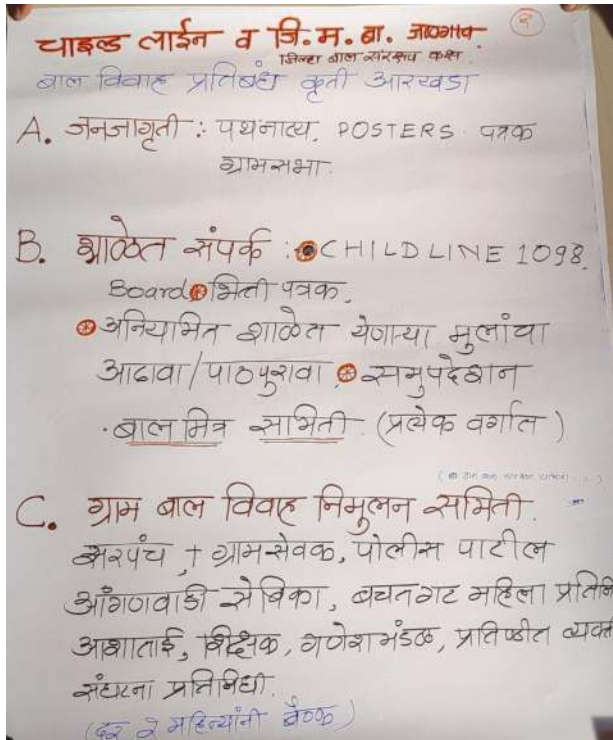 १
चाइल्ड लाईन व जि.म.बा. जळगाव.
जिल्हा बाल संरक्षण कक्ष
बाल विवाह प्रतिबंध कृती आराखडा
A. जनजागृती : पथनाट्य, POSTERS. पत्रक
ग्रामसभा.
B. शाळेत संपर्क : CHILD LINE 1098.
Board भिती पत्रक.
अनियामित शाळेत येणाऱ्या मुलांचा
आढावा/पाठपुरावा. समुपदेशन
· बाल मित्र समिती. (प्रत्येक वर्गात)
C. ग्राम बाल विवाह निमुलन समिती.
सरपंच, + ग्रामसेवक, पोलीस पाटील
आंगणवाडी सेविका, बचतगट महिला प्रतिनि
आशाताई, शिक्षक, गणेशमंडळ, प्रतिष्ठीत व्यक्त
संघटना प्रतिनिधी.
(दर २ महिन्यांनी बैठक)